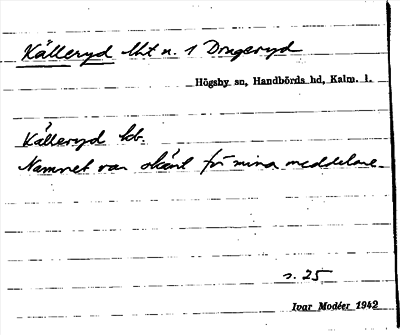 Källeryd lht u. 1 Drageryd
Högsby sn, Handbörds hd, Kalm. l.
Källeryd lb.
Namnet var okänt för mina meddelare.
s. 25
Ivar Modéer 1942